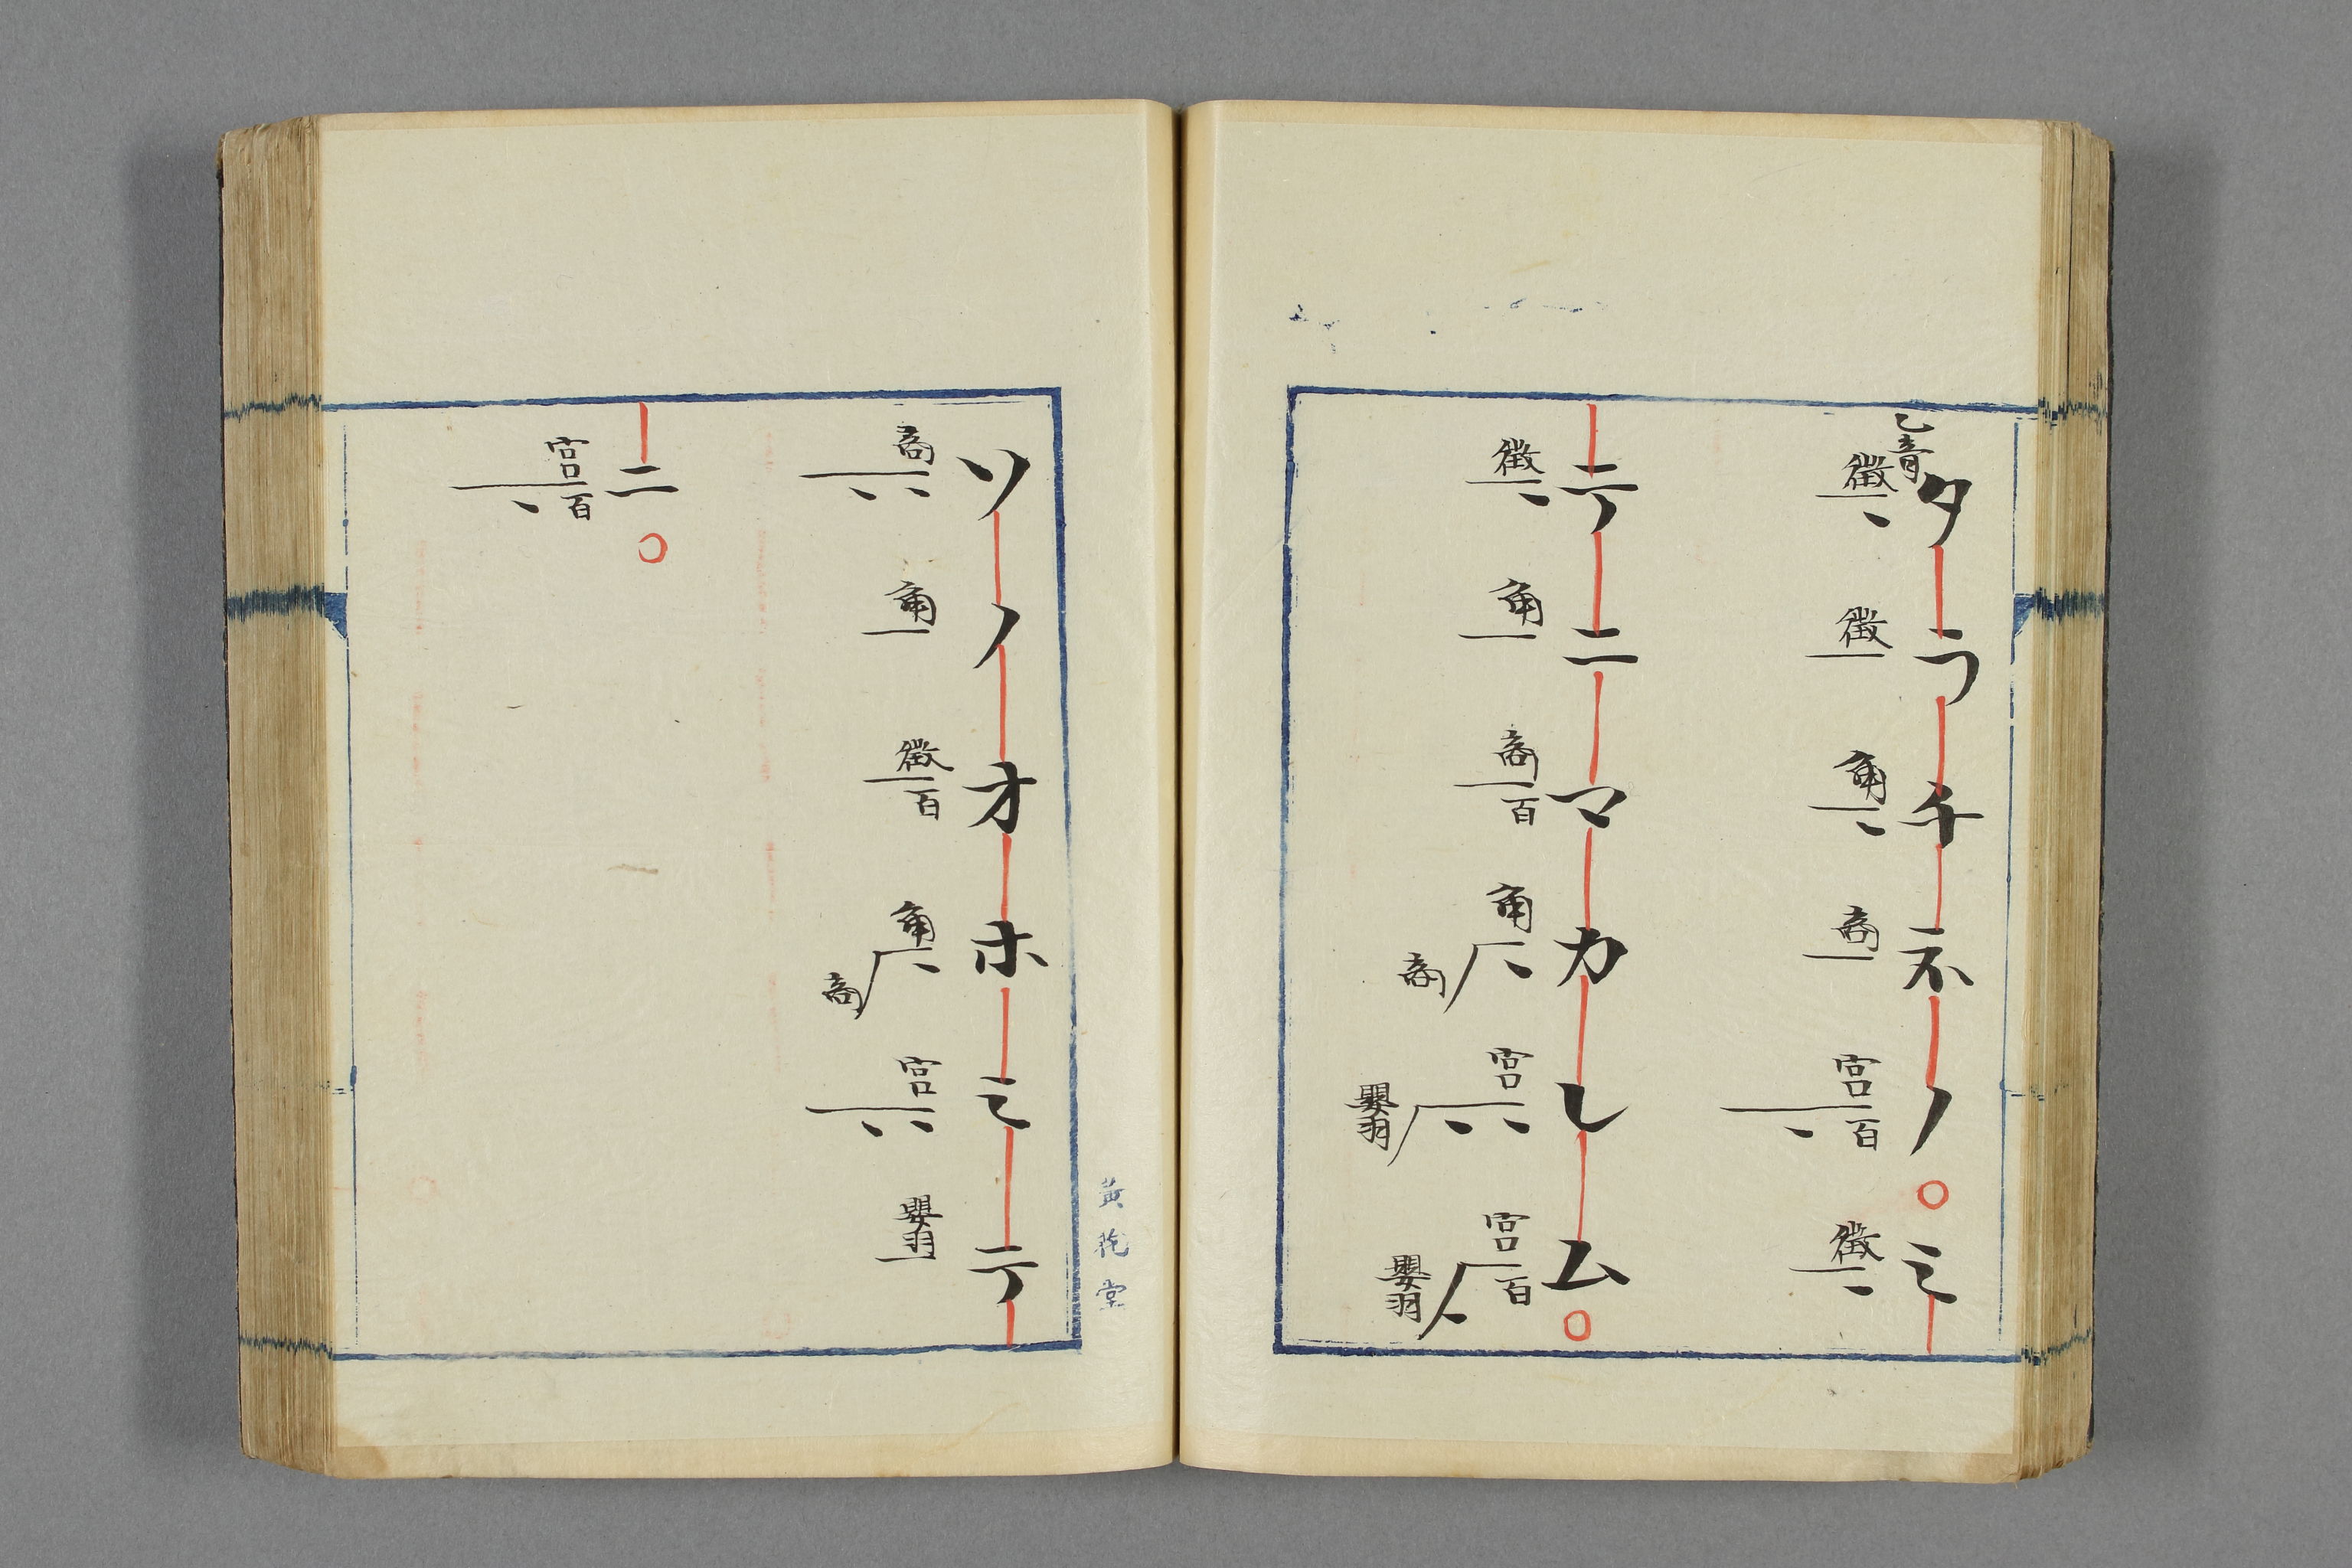 タラチネノ○ミ
乙音 徴 徴 角 商 宮百 徴
テニマカレム○
徴 角 商百 角商 宮嬰羽 宮百嬰羽
ソノオホミテ
商 角 徴百 角商 宮 嬰羽
ニ○
宮百